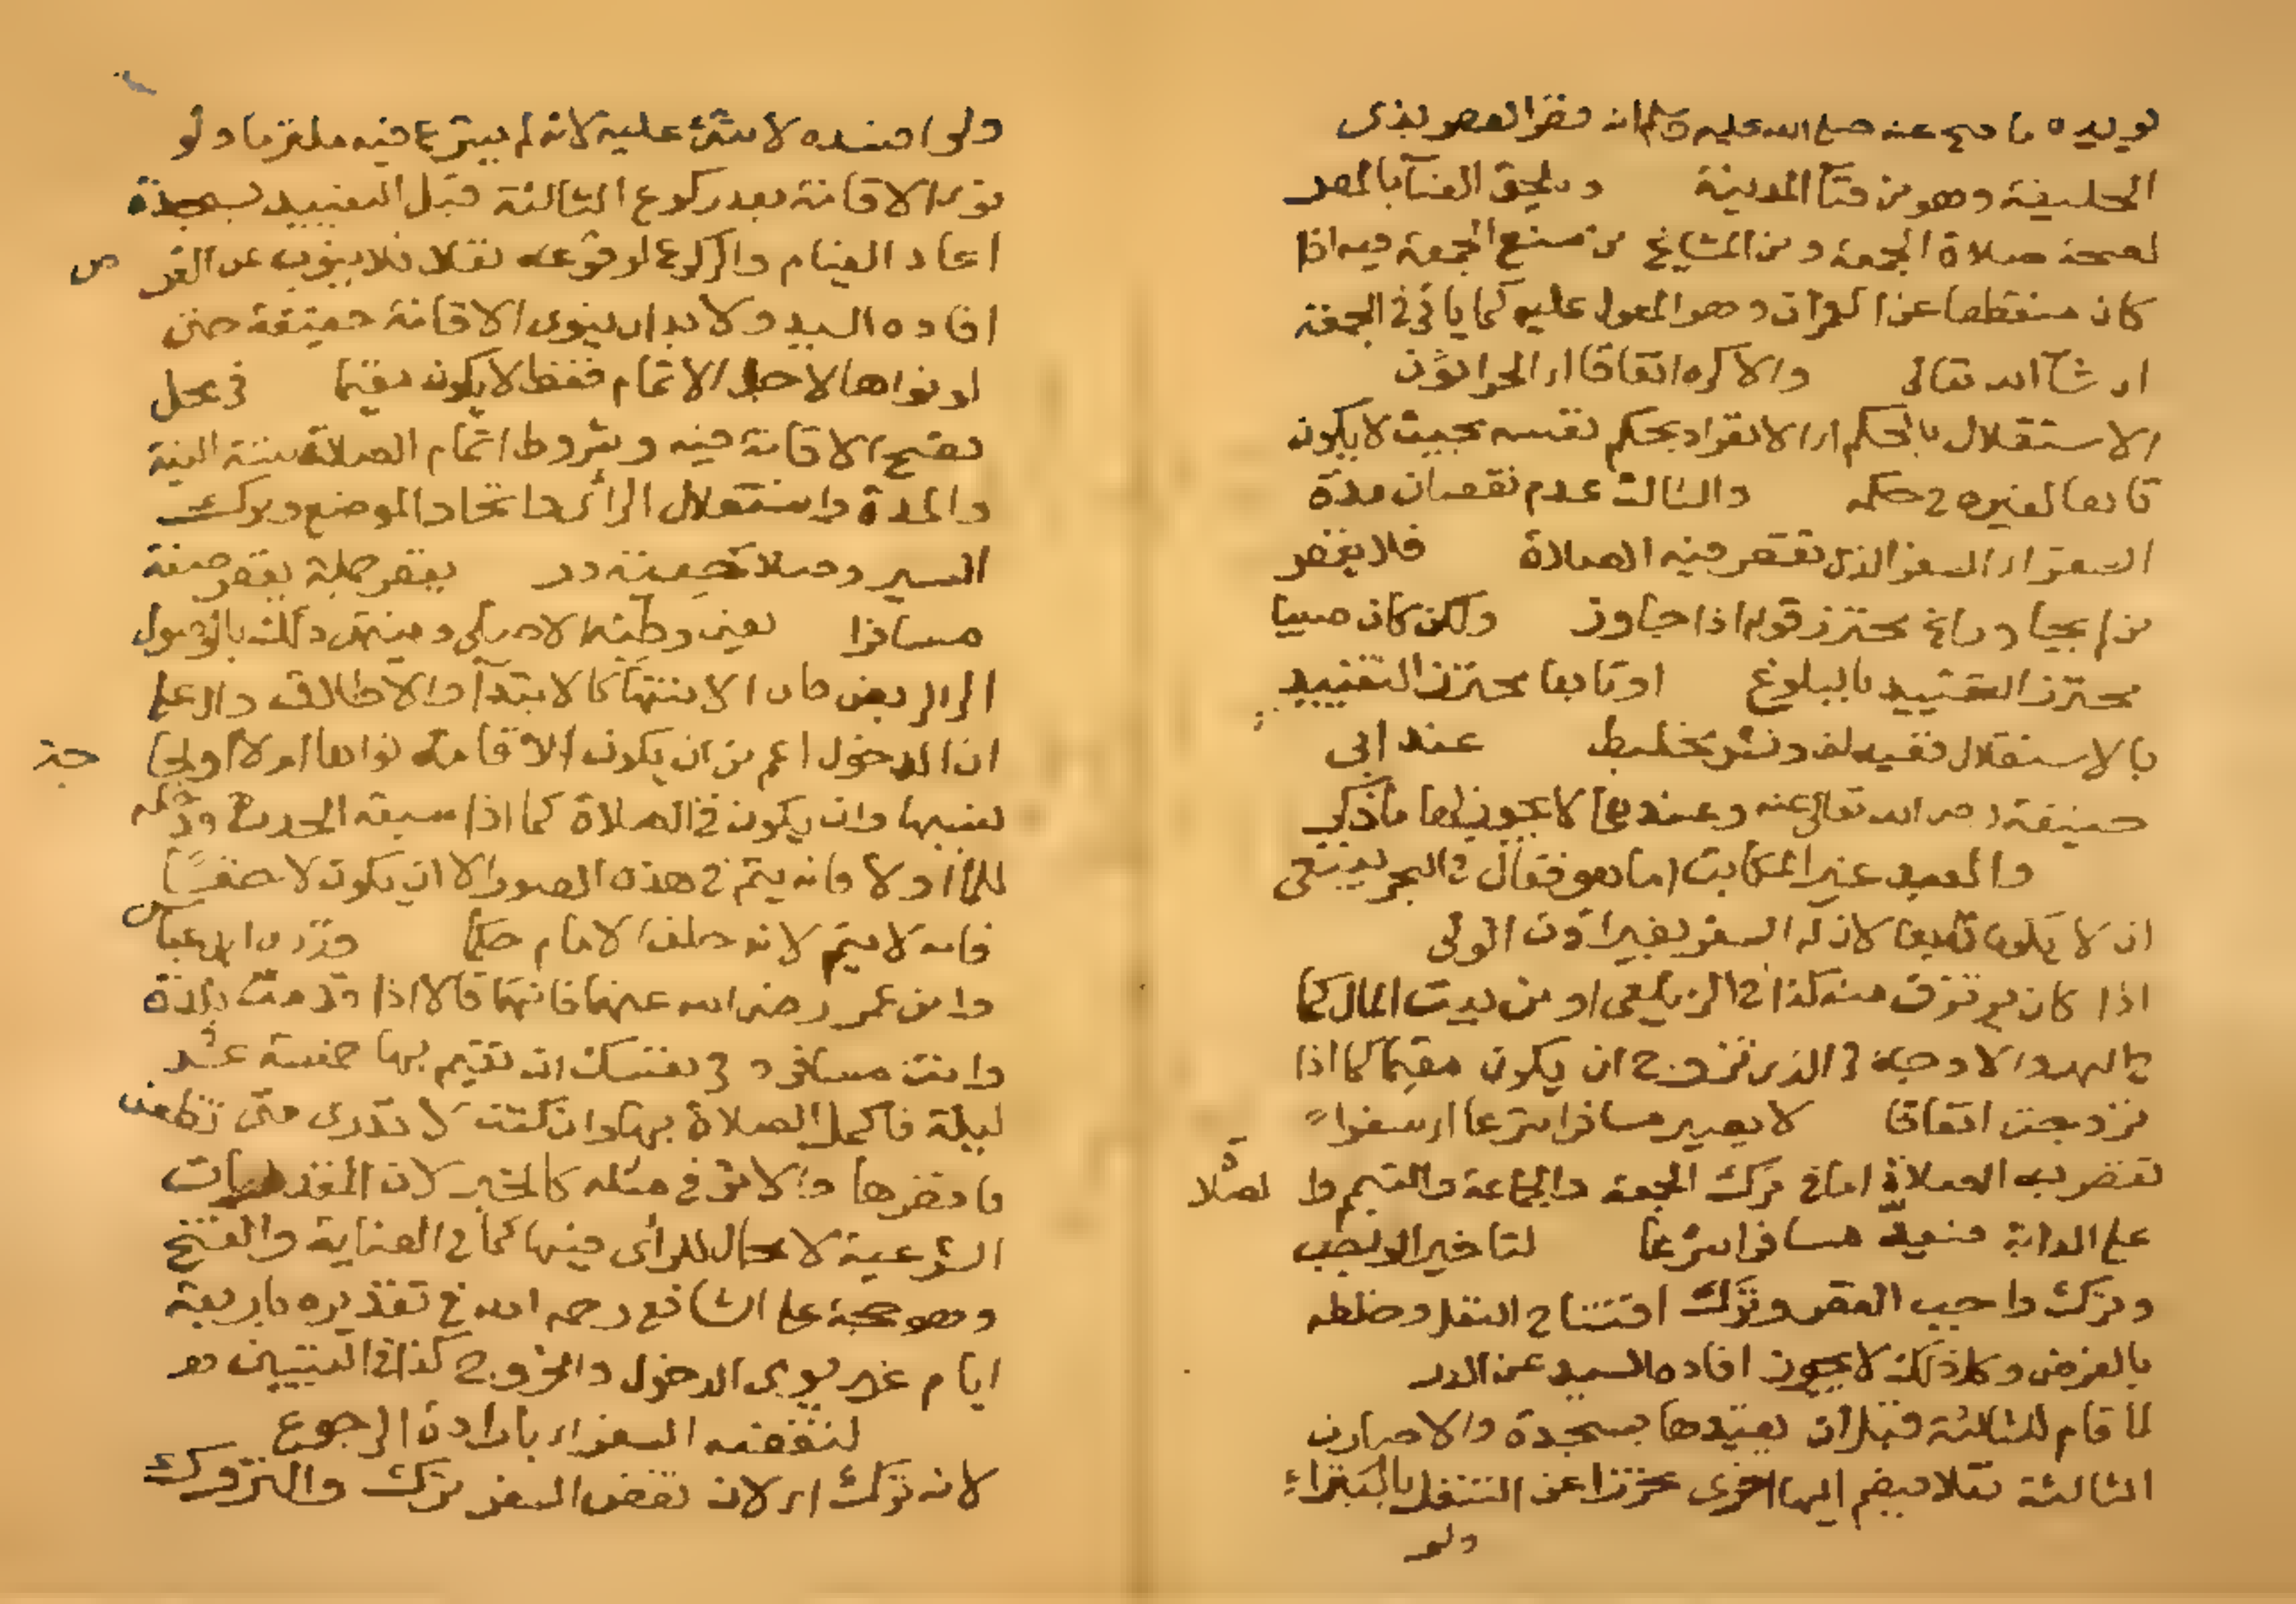 يويده ما صح عنه صلى الله عليه وسلم انه قصر العصر بذى
الحليفة وهو من فنآ المدينة ويلحق الفنآ بالمصر
لصحة صلاة الجمعة ومن المشايخ من منع الجمعة فيه اذا
كان منقطعا عن العمران وهو المعول عليه كما ياتى فى الجمعة
ان شآ الله تعالى والا كره اتفاقا
الاستقلال بالحكم اى الانفراد بحكم نفسه بحيث لا يكون
تابعا لغيره فى حكمه والثالث عدم نقصان مدة
السفر اى السفر الذى تقصر فيه الصلاة فلا يقصر
من لم يجاوز محترز قوله اذا جاوز ولكن كان صبيا
محترز التقييد بالبلوغ او تابعا محترز التقييد
بالاستقلال ففيه لف ونشر مخلبط عند ابى
حنيفة رضى الله تعالى عنه وعندهما لا يجوز لها ما ذكر
والعبد غير المكاتب اما هو فقال فى البحر ينبغى
ان لا يكون تابعا لان له السفر بغير اذن المولى
اذا كان يرتزق منه كذا فى الزيلعى او من بيت المال كما
فى النهر والاوجه فى الذى تزوج ان يكون مقيما كما اذا
تزوجت اتفاقا لا يصير مسافرا شرعا اى سفرا
تقصر به الصلاة اما فى ترك الجمعة والجماعة والتيمم والصلاة
على الدابة فيعد مسافرا شرعا لتاخير الواجب
وترك واجب القصر وترك افتتاح النفل وخلطه
بالفرض وكل ذلك لا يجوز افاده السيد عن الدر
لما قام للثالثة قبل ان يقيدها بسجدة والا صارت
الثالثة نفلا فيضم اليها اخرى تحرزا عن التنفل بالبتراء
ولو
ولو افسده لا شئ عليه لانه لم يشرع فيه ملتزما ولو
نوى الاقامة بعد ركوع الثالثة قبل التقييد بسجدة
اعاد القيام والركوع لوقوعه نفلا فلا ينوب عن الفرض
افاده السيد ولا بد ان ينوى الاقامة حقيقة حتى
لو نواها لاجل الاتمام فقط لا يكون مقيما فى محل
تصح الاقامة فيه وشروط اتمام الصلاة ستة النية
والمدة واستقلال الرأى واتحاد الموضع وترك
السير وصلاحيته در بقصر جملة بقصر صفة
مسافرا يعنى وطنه الاصلى وينتهى ذلك بالوصول
الى الربض فان الانتهآ كالابتدآ والاطلاق دال على
ان الدخول اعم من ان يكون الاقامة نواها ام لا او لحاجة
نسيها وان يكون فى الصلاة كما اذا سبقه الحدث وتذكر
للما او لا فانه يتم فى هذه الصور الا ان يكون لاحقا
فانه لا يتم لانه خلف الامام حكما وقدره ابن عباس
وابن عمر رضى الله عنهما فانهما قالا اذا قدمت بلدة
وانت مسافر وفى نفسك ان تقيم بها خمسة عشر
ليلة فاكمل الصلاة بها وان كنت لا تدرى متى تظعن
فاقصرها والاثر فى مثله كالخبر لان المقدرات
الشرعية لا مجال للرأى فيها كما فى العناية والفتح
وهو حجة على الشافعى رحمه الله فى تقديره باربعة
ايام غير يومى الدخول والخروج كذا فى التبيين
لنقضه السفر اى بارادة الرجوع
لانه ترك اى لان نقض السفر ترك والتروك